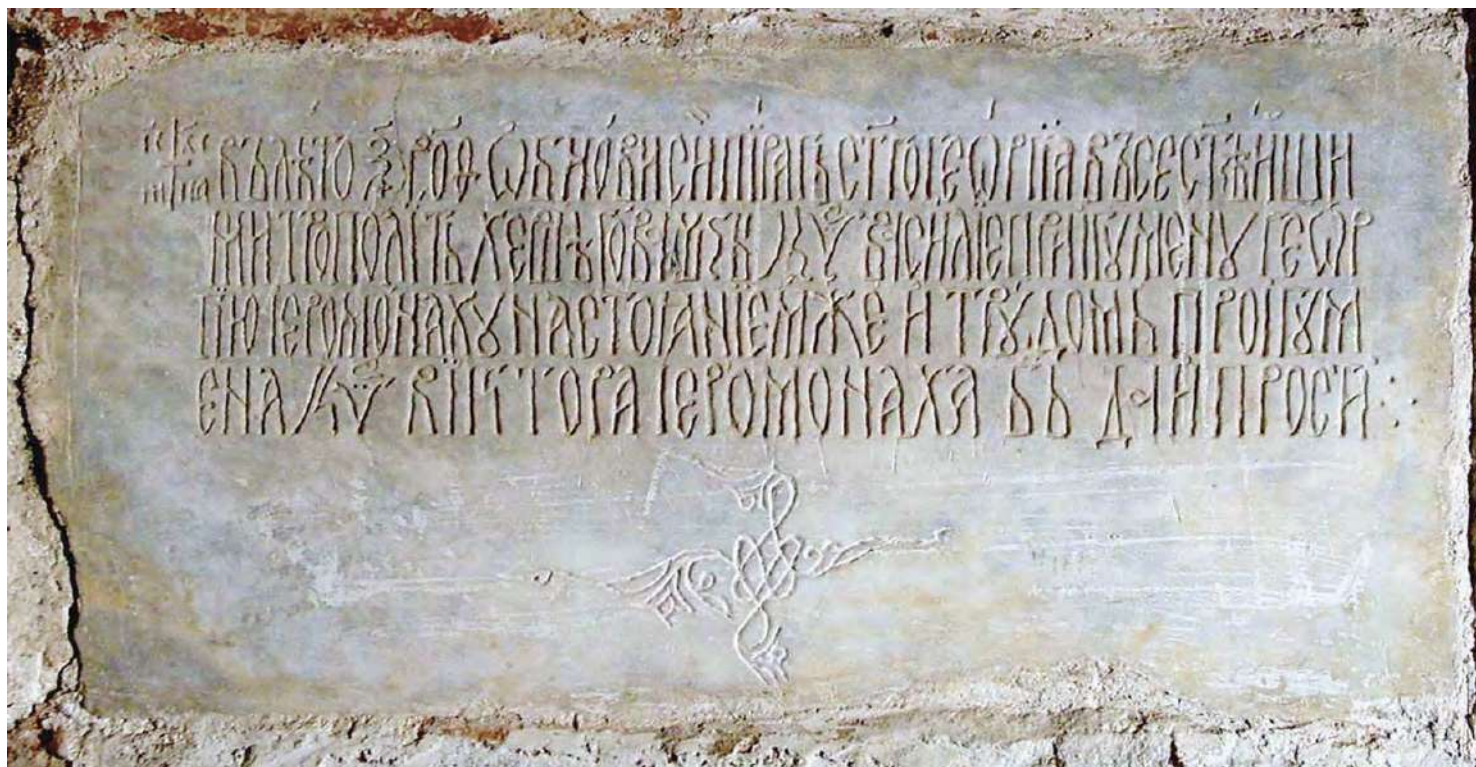 іс хс ни ка въ лѣто ҂з҃роѳ ѡбнови си пїрагь ст҃го геѡргїа въсест҃ѣиши
митрополїть херцѣговшскы кѵр василіе при игумену геѡр
гїю іеромонаху настоꙗніем же и трꙋдомь проігум
ена кѵр віктора іеромонаха бь да и прости :·